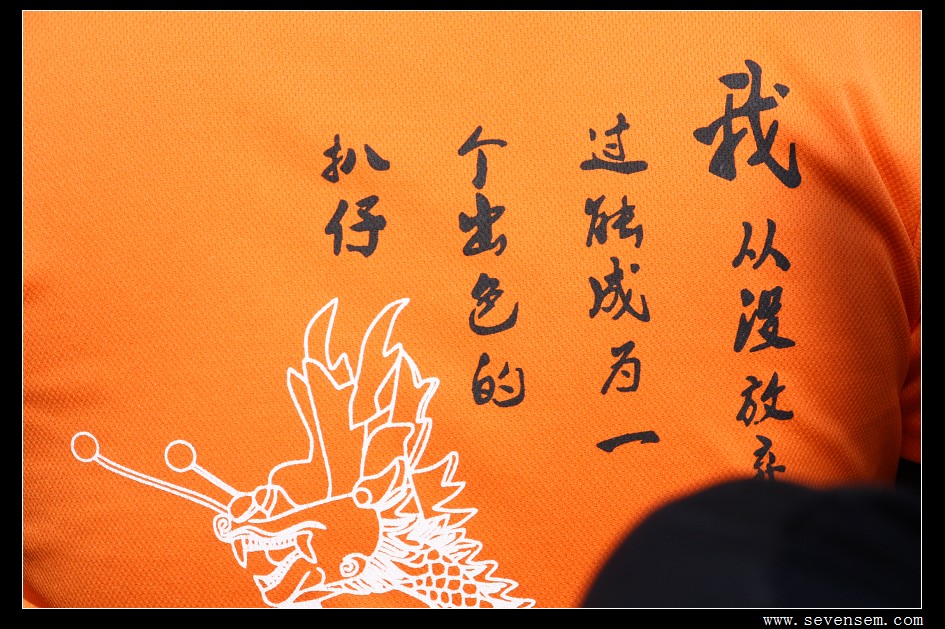 我从没放弃
过能成为一
个出色的
扒仔
www.sevensem.com